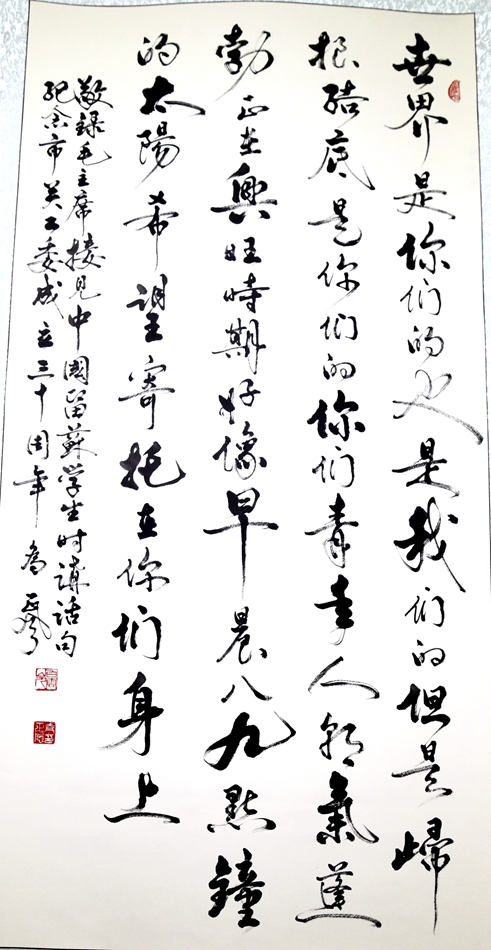 世界是你们的也是我们的但是歸
根结底是你们的你们青年人朝氣蓬
勃正在興旺時期好像早晨八九點鐘
的太陽希望寄托在你们身上
敬録毛主席接见中國留蘇学生时講话句
纪念市关工委成立三十周年